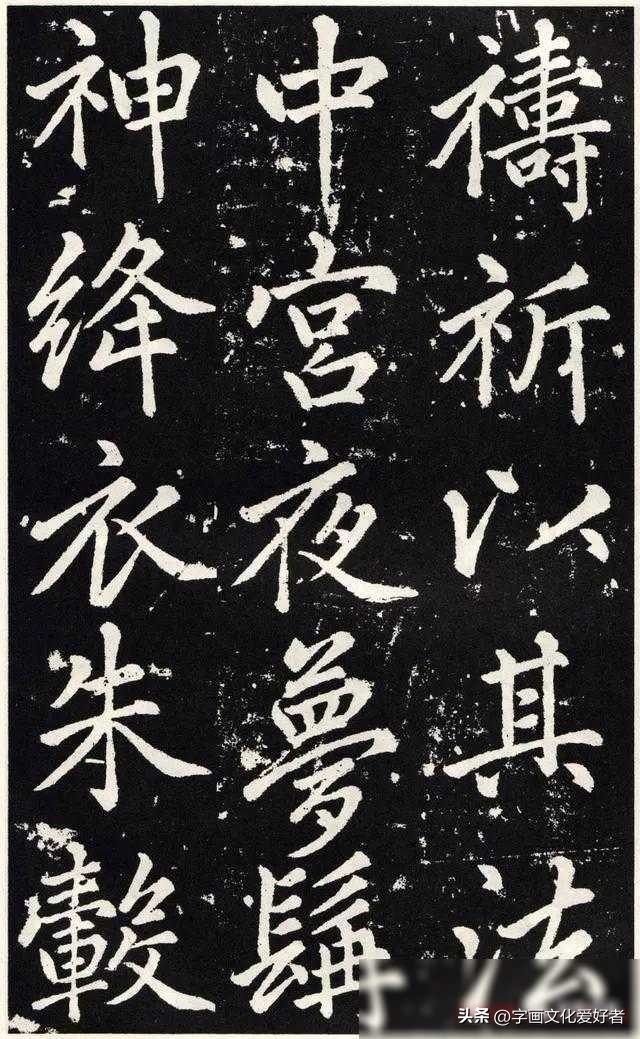 禱祈以其法
中宮夜夢髯
神絳衣朱轂
头条 @字画文化爱好者